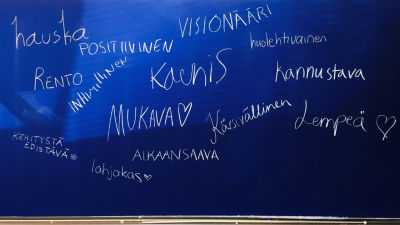 hauska
POSITIIVINEN
VISIONÄÄRI
huolehtivainen
RENTO
INHIMILLINEN
KAUNIS
kannustava
MUKAVA♡
Kärsivällinen
Lempeä ♡
KEHITYSTÄ
EDISTÄVÄ
AIKAANSAAVA
lahjakas♡